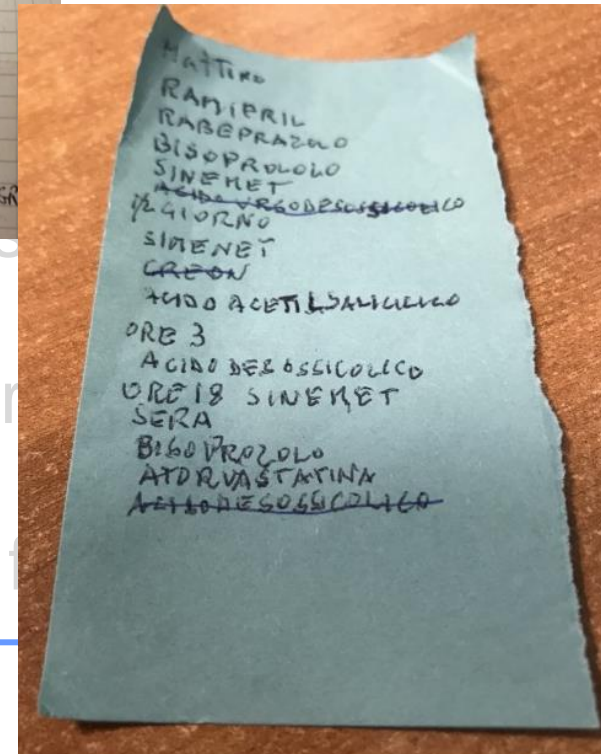 MATTINO
RAMIPRIL
RABEPRAZOLO
BISOPROLOLO
SINEMET
ACIDO URSODESOSSICOLICO
1/2 GIORNO
SIMENET
CREON
ACIDO ACETILSALICILICO
ORE 3
ACIDO DESOSSICOLICO
ORE 18 SINEMET
SERA
BISOPROLOLO
ATORVASTATINA
ACIDO DESOSSICOLICO